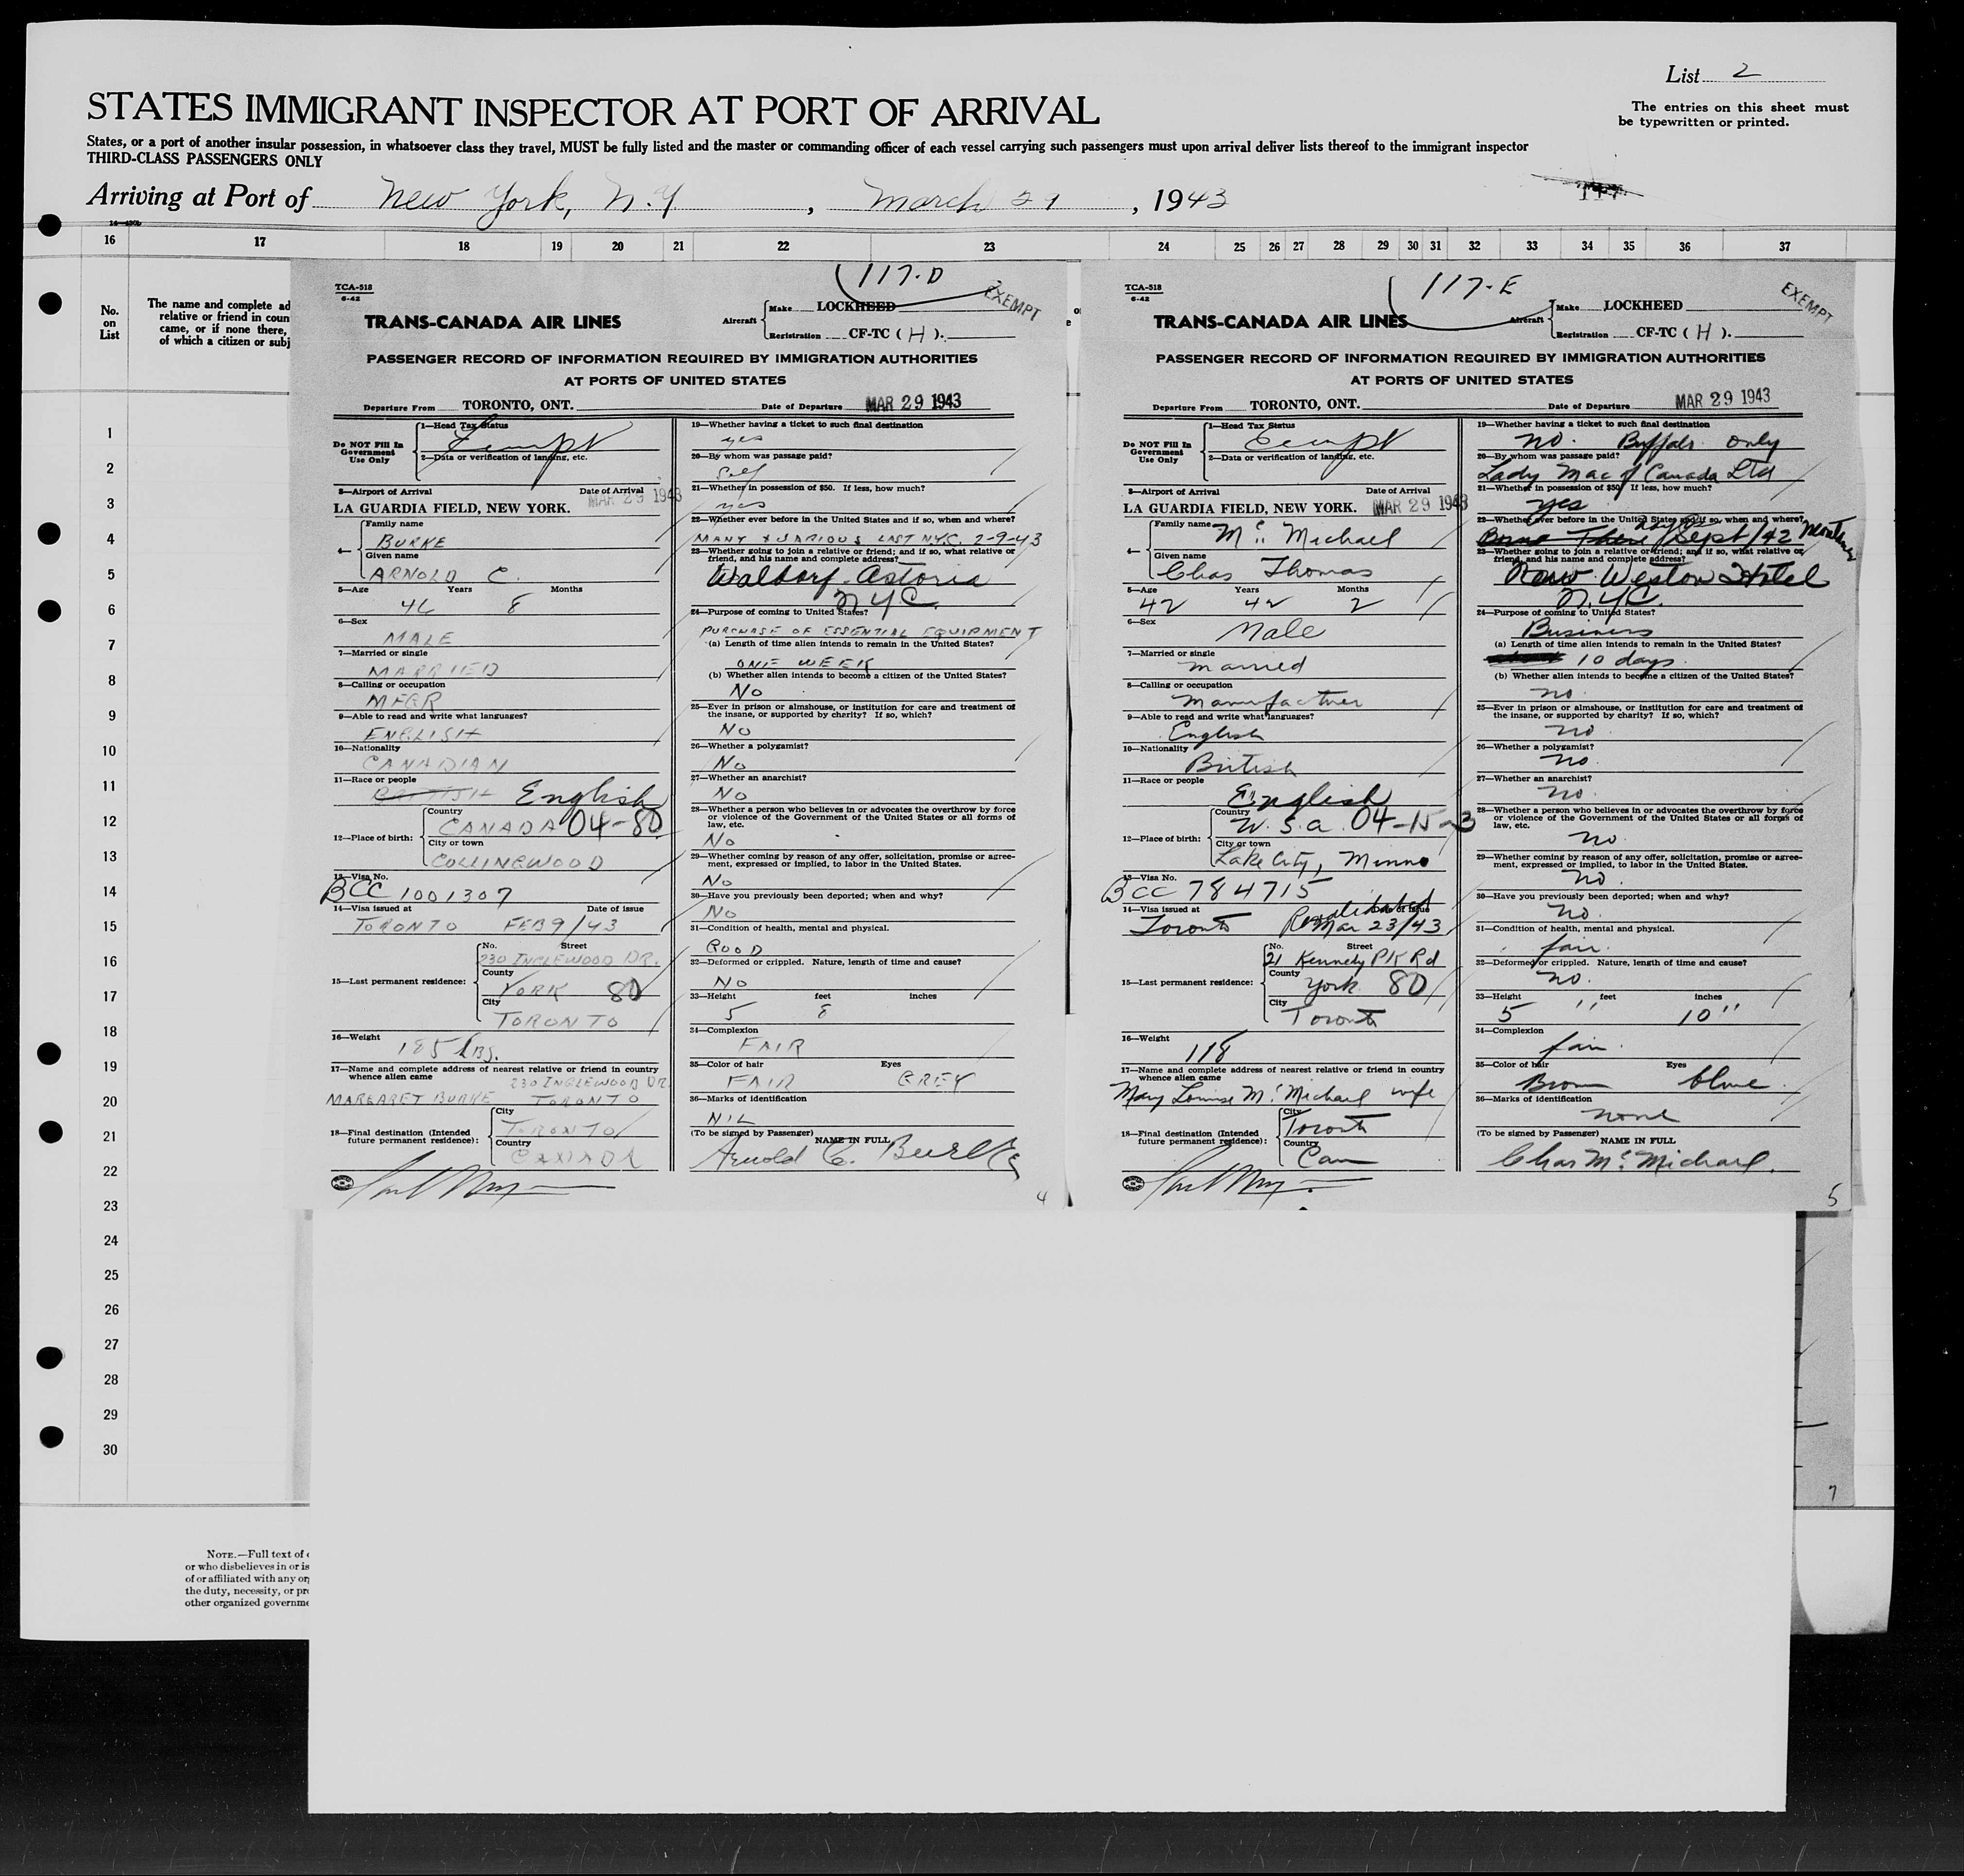 List 2
The entries on this sheet must
be typewritten or printed.
STATES IMMIGRANT INSPECTOR AT PORT OF ARRIVAL
States, or a port of another insular possession, in whatsoever class they travel, MUST be fully listed and the master or commanding officer of each vessel carrying such passengers must upon arrival deliver lists thereof to the immigrant inspector
THIRD-CLASS PASSENGERS ONLY
Arriving at Port of New York, N.Y. , March 29 , 1943
16 17 18 19 20 21 22 23 24 25 26 27 28 29 30 31 32 33 34 35 36 37
No.
on
List
The name and complete ad
relative or friend in coun
came, or if none there,
of which a citizen or subj
1
2
3
4
5
6
7
8
9
10
11
12
13
14
15
16
17
18
19
20
21
22
23
24
25
26
27
28
29
30
NOTE.—Full text of
or who disbelieves in or is
of or affiliated with any org
the duty, necessity, or pro
other organized governme
117-D
TCA-518
6-42
EXEMPT
TRANS-CANADA AIR LINES
Aircraft
Make LOCKHEED
Registration CF-TC ( H ).
PASSENGER RECORD OF INFORMATION REQUIRED BY IMMIGRATION AUTHORITIES
AT PORTS OF UNITED STATES
Departure From TORONTO, ONT. Date of Departure MAR 29 1943
Do NOT Fill In
Government
Use Only
1—Head Tax Status
Exempt
2—Data or verification of landing, etc.
3—Airport of Arrival Date of Arrival
LA GUARDIA FIELD, NEW YORK. MAR 29 1943
4—
Family name
BURKE
Given name
ARNOLD C.
5—Age Years Months
46 8
6—Sex
MALE
7—Married or single
MARRIED
8—Calling or occupation
MFGR
9—Able to read and write what languages?
ENGLISH
10—Nationality
CANADIAN
11—Race or people
BRITISH English
12—Place of birth:
Country
CANADA 04-80
City or town
COLLINGWOOD
13—Visa No.
BCC 1001307
14—Visa issued at Date of issue
TORONTO FEB 9/43
15—Last permanent residence:
No. Street
230 INGLEWOOD DR.
County
YORK 80
City
TORONTO
16—Weight
185 LBS.
17—Name and complete address of nearest relative or friend in country
whence alien came
230 INGLEWOOD DR
MARGARET BURKE TORONTO
18—Final destination (Intended
future permanent residence):
City
TORONTO
Country
CANADA
19—Whether having a ticket to such final destination
yes
20—By whom was passage paid?
Self
21—Whether in possession of $50. If less, how much?
yes
22—Whether ever before in the United States and if so, when and where?
MANY & VARIOUS LAST NYC. 2-9-43
23—Whether going to join a relative or friend; and if so, what relative or
friend, and his name and complete address?
Waldorf-Astoria
NYC.
24—Purpose of coming to United States?
PURCHASE OF ESSENTIAL EQUIPMENT
(a) Length of time alien intends to remain in the United States?
ONE WEEK
(b) Whether alien intends to become a citizen of the United States?
No
25—Ever in prison or almshouse, or institution for care and treatment of
the insane, or supported by charity? If so, which?
No
26—Whether a polygamist?
No
27—Whether an anarchist?
No
28—Whether a person who believes in or advocates the overthrow by force
or violence of the Government of the United States or all forms of
law, etc.
No
29—Whether coming by reason of any offer, solicitation, promise or agree-
ment, expressed or implied, to labor in the United States.
No
30—Have you previously been deported; when and why?
No
31—Condition of health, mental and physical.
GOOD
32—Deformed or crippled. Nature, length of time and cause?
No
33—Height feet inches
5 8
34—Complexion
FAIR
35—Color of hair Eyes
FAIR GREY
36—Marks of identification
NIL
(To be signed by Passenger) NAME IN FULL
Arnold C. Burke
4
117-E
TCA-518
6-42
EXEMPT
TRANS-CANADA AIR LINES
Aircraft
Make LOCKHEED
Registration CF-TC ( H ).
PASSENGER RECORD OF INFORMATION REQUIRED BY IMMIGRATION AUTHORITIES
AT PORTS OF UNITED STATES
Departure From TORONTO, ONT. Date of Departure MAR 29 1943
Do NOT Fill In
Government
Use Only
1—Head Tax Status
Exempt
2—Data or verification of landing, etc.
3—Airport of Arrival Date of Arrival
LA GUARDIA FIELD, NEW YORK. MAR 29 1943
4—
Family name
McMichael
Given name
Chas Thomas
5—Age Years Months
42 42 2
6—Sex
Male
7—Married or single
Married
8—Calling or occupation
Manufactner
9—Able to read and write what languages?
English
10—Nationality
British
11—Race or people
English
12—Place of birth:
Country
U.S.a. 04-15-3
City or town
Lake City, Minno
13—Visa No.
BCC 784715
14—Visa issued at Date of issue
Toronto Revalidated Mar 23/43
15—Last permanent residence:
No. Street
21 Kennedy PK Rd
County
York 80
City
Toronto
16—Weight
118
17—Name and complete address of nearest relative or friend in country
whence alien came
Mary Louise McMichael wife
18—Final destination (Intended
future permanent residence):
City
Toronto
Country
Can
19—Whether having a ticket to such final destination
no. Buffalo only
20—By whom was passage paid?
Lady Mac of Canada Ltd
21—Whether in possession of $50. If less, how much?
yes
22—Whether ever before in the United States and if so, when and where?
Born There Sept/42
23—Whether going to join a relative or friend; and if so, what relative or
friend, and his name and complete address?
New Weston Hotel
N.Y.C.
24—Purpose of coming to United States?
Business
(a) Length of time alien intends to remain in the United States?
10 days
(b) Whether alien intends to become a citizen of the United States?
no.
25—Ever in prison or almshouse, or institution for care and treatment of
the insane, or supported by charity? If so, which?
no.
26—Whether a polygamist?
no.
27—Whether an anarchist?
no.
28—Whether a person who believes in or advocates the overthrow by force
or violence of the Government of the United States or all forms of
law, etc.
no.
29—Whether coming by reason of any offer, solicitation, promise or agree-
ment, expressed or implied, to labor in the United States.
no.
30—Have you previously been deported; when and why?
no.
31—Condition of health, mental and physical.
fair.
32—Deformed or crippled. Nature, length of time and cause?
no.
33—Height feet inches
5 " 10"
34—Complexion
fair.
35—Color of hair Eyes
Brown blue
36—Marks of identification
none
(To be signed by Passenger)
NAME IN FULL
Chas McMichael.
5
7